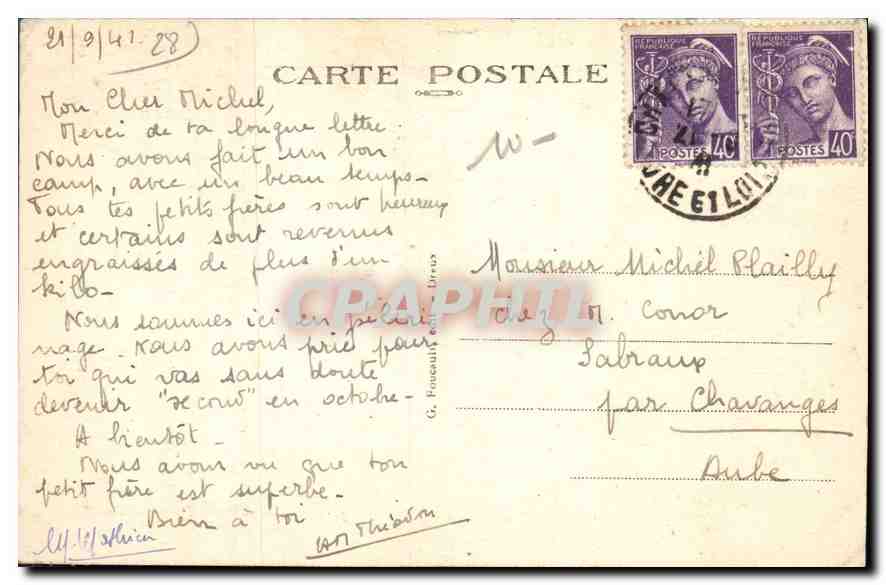 21/9/41 28)
CARTE POSTALE
REPUBLIQUE FRANÇAISE
POSTES 40
REPUBLIQUE FRANÇAISE
POSTES 40
EURE ET LOIR
Mon Cher Michel,
Merci de ta longue lettre.
Nous avons fait un bon
camp, avec un beau temps-
Tous tes petits frères sont heureux
et certains sont revenus
engraissés de plus d'un
kilo-
Nous sommes ici en pèleri
nage. Nous avons prié pour
toi qui vas sans doute
devenir "second" en octobre-
A bientôt-
Nous avons vu que ton
petit frère est superbe-
Bien à toi
10-
G. Foucault, édit., Dreux
CPAPHIL
Monsieur Michel Plailly
chez M. Conor
Labraux
par Chavanges
Aube